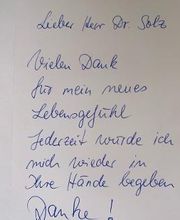 Lieber Herr Dr. Solz
Vielen Dank
für mein neues
Lebensgefühl
Jederzeit würde ich
mich wieder in
Ihre Hände begeben
Danke!